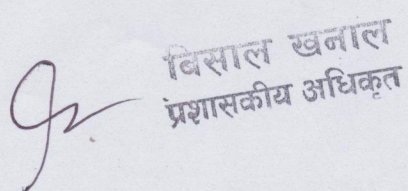 बिसाल खनाल
प्रशासकीय अधिकृत